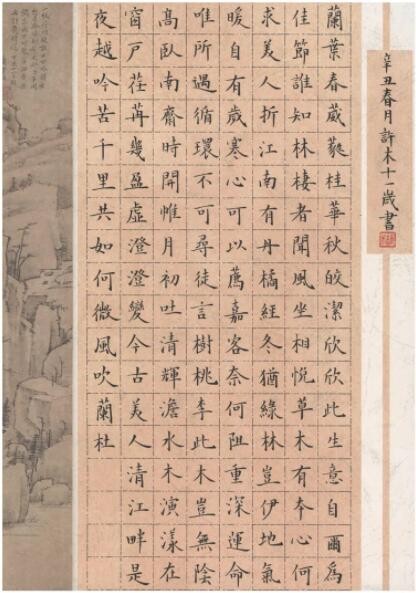 蘭葉春葳蕤桂華秋皎潔欣欣此生意自爾為
佳節誰知林棲者聞風坐相悅草木有本心何
求美人折江南有丹橘經冬猶綠林豈伊地氣
暖自有歲寒心可以薦嘉客奈何阻重深運命
唯所遇循環不可尋徒言樹桃李此木豈無陰
髙臥南齋時開帷月初吐清輝澹水木演漾在
窗戶荏苒幾盈虛澄澄變今古美人清江畔是
夜越吟苦千里共如何微風吹蘭杜
辛丑春月許木十一歲書